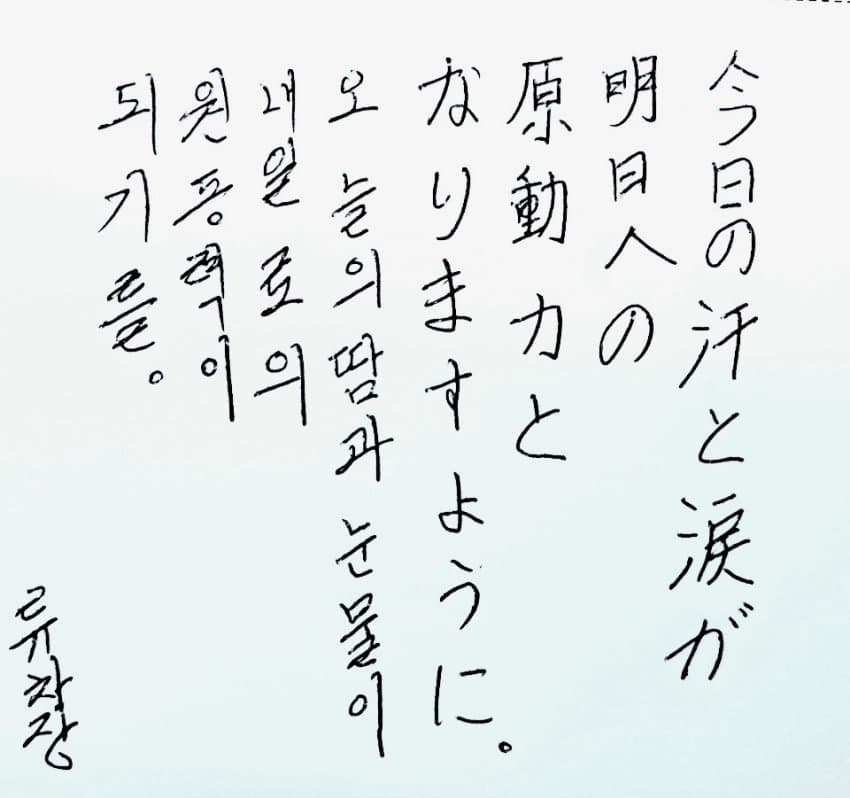 今日の汗と涙が
明日への
原動力と
なりますように。
오늘의땀과눈물이
내일로의
원동력이
되기를。
류차장